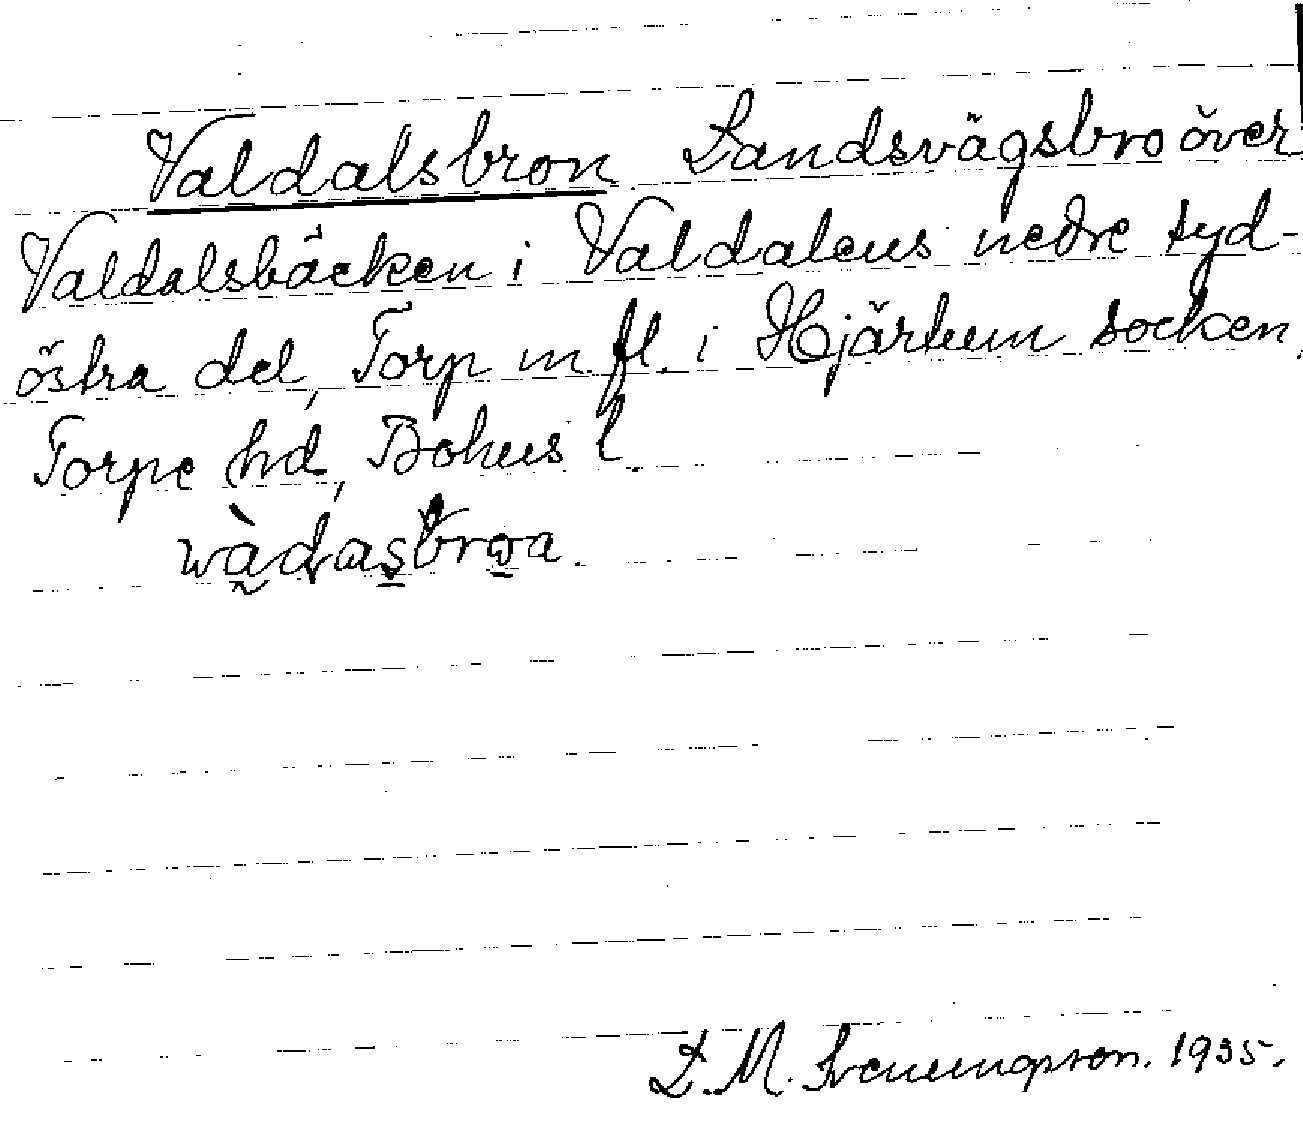 Valdalsbron Landsvägsbro över
Valdalsbäcken i Valdalens nedre syd-
östra del, Torp m fl. i Hjärtum socken,
Torpe hd, Bohus l.
wàdasbroa.
L. M. Svenungsson. 1935.